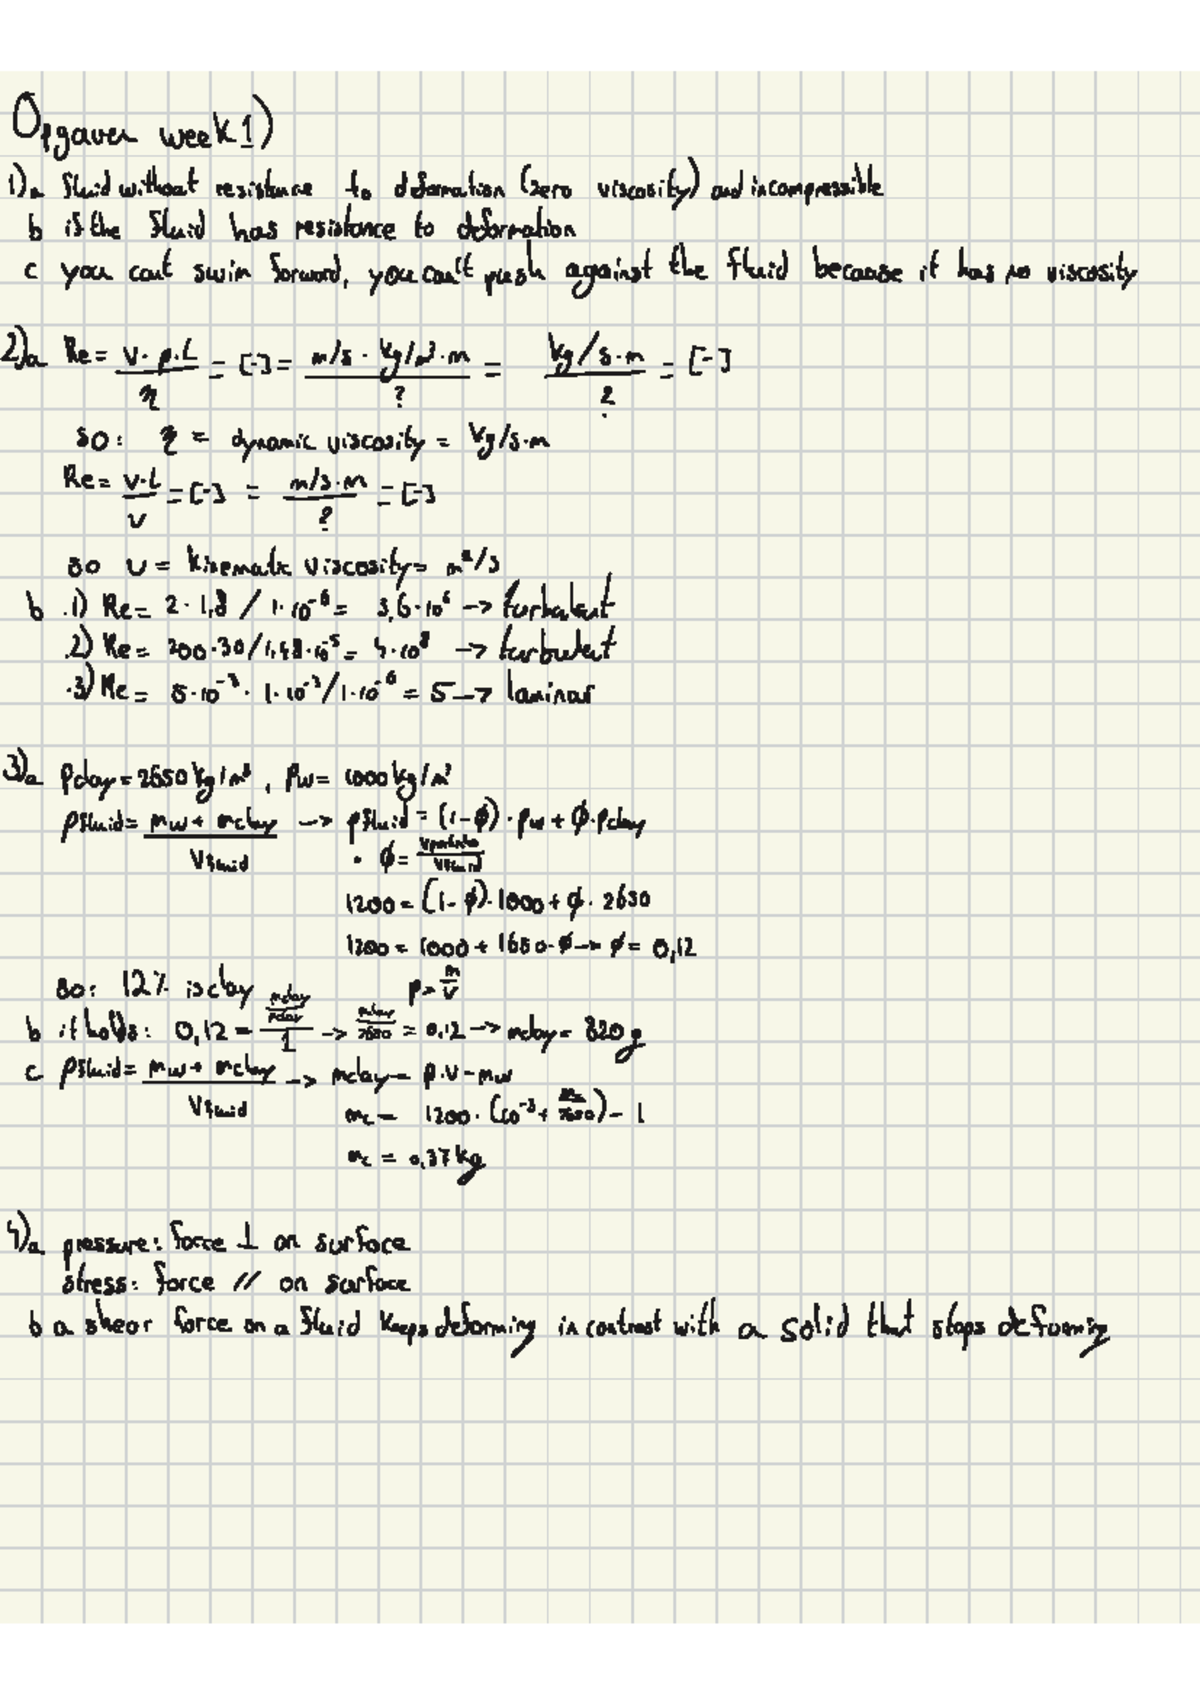 Opgaven week 1)
1)a fluid without resistance to deformation (zero viscosity) and incompressible
b if the fluid has resistance to deformation
c you cant swim forward, you can't push against the fluid because it has no viscosity
2)a Re = v·ρ·L / η = [-] = m/s · kg/m³ · m / ? = kg/s·m / ? = [-]
so: η = dynamic viscosity = kg/s·m
Re = v·L / ν = [-] = m/s·m / ? = [-]
so ν = kinematic viscosity = m²/s
b .1) Re = 2 · 1,8 / 1·10⁻⁶ = 3,6·10⁶ -> turbulent
.2) Re = 200·30/1,48·10⁻⁵ = 4·10⁸ -> turbulent
.3) Re = 5·10⁻³ · 1·10⁻³/1·10⁻⁶ = 5 -> laminar
3)a ρclay = 2650 kg/m³, ρw = 1000 kg/m³
ρfluid = mw + mclay / Vfluid -> ρfluid = (1-ϕ)·ρw + ϕ·ρclay
· ϕ = Vparticles / Vfluid
1200 = (1-ϕ)·1000 + ϕ·2650
1200 = 1000 + 1650·ϕ -> ϕ = 0,12
so: 12% is clay ρ = m/V
b it holds: 0,12 = mclay/ρclay / 1 -> mclay/2650 = 0,12 -> mclay = 320 g
c ρfluid = mw + mclay / Vfluid -> mclay = ρ·V - mw
mc = 1200 · (10⁻³ + mc/2650) - 1
mc = 0,37 kg
4)a pressure: force ⊥ on surface
stress: force // on surface
b a shear force on a fluid keeps deforming in contrast with a solid that stops deforming